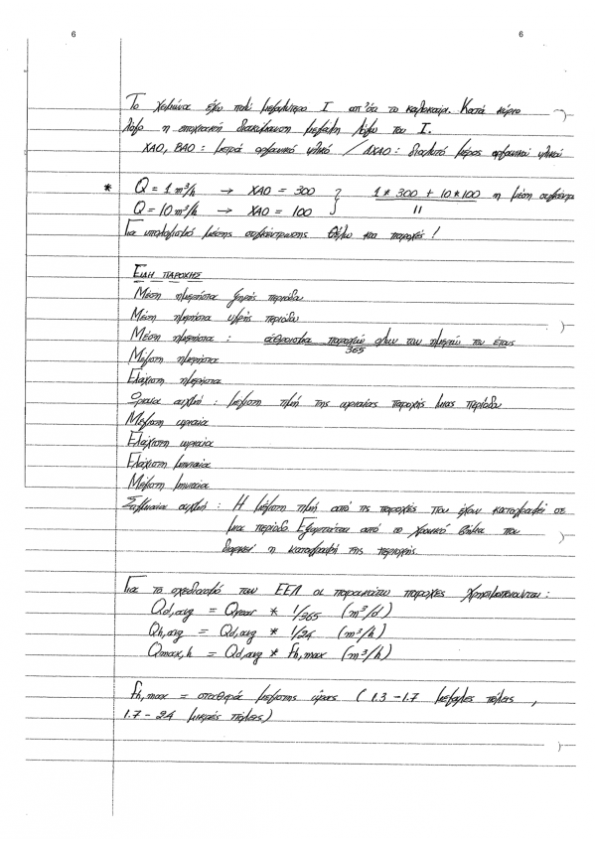 6 6
Το χειμώνα έχω πολύ μεγαλύτερο I απ' ότι το καλοκαίρι. Κατά κύριο
λόγο η εποχιακή διακύμανση μεγάλη λόγω του I.
ΧΑΟ, ΒΑΟ : μετρά οργανικό υλικό / ΔΧΑΟ : διαλυτό μέρος οργανικού υλικού
* Q = 1 m³/h → ΧΑΟ = 300 } 1 * 300 + 10 * 100 η μέση συγκέντρ
Q = 10 m³/h → ΧΑΟ = 100 11
Για υπολογισμό μέσης συγκέντρωσης θέλω και παροχές!
ΕΙΔΗ ΠΑΡΟΧΗΣ
Μέση ημερήσια ξηρής περιόδου
Μέση ημερήσια υγρής περιόδου
Μέση ημερήσια : αθροίσματα παροχών όλων των ημερών του έτους
365
Μέγιστη ημερήσια
Ελάχιστη ημερήσια
Ωριαία αιχμή : μέγιστη τιμή της ωριαίας παροχής μιας περιόδου
Μέγιστη ωριαία
Ελάχιστη ωριαία
Ελάχιστη μηνιαία
Μέγιστη μηνιαία
Στιγμιαία αιχμή : Η μέγιστη τιμή από τις παροχές που έχουν καταγραφεί σε
μια περίοδο Εξαρτάται από το χρονικό βήμα που
διαρκεί η καταγραφή της παροχής.
Για το σχεδιασμό των ΕΕΛ οι παρακάτω παροχές χρησιμοποιούνται :
Qd,avg = Qyear * 1/365 (m³/d)
Qh,avg = Qd,avg * 1/24 (m³/h)
Qmax,h = Qd,avg * fh,max (m³/h)
fh,max = σταθερά μέγιστης ώρας ( 1.3 - 1.7 μεγάλες πόλεις ,
1.7 - 2.4 μικρές πόλεις)